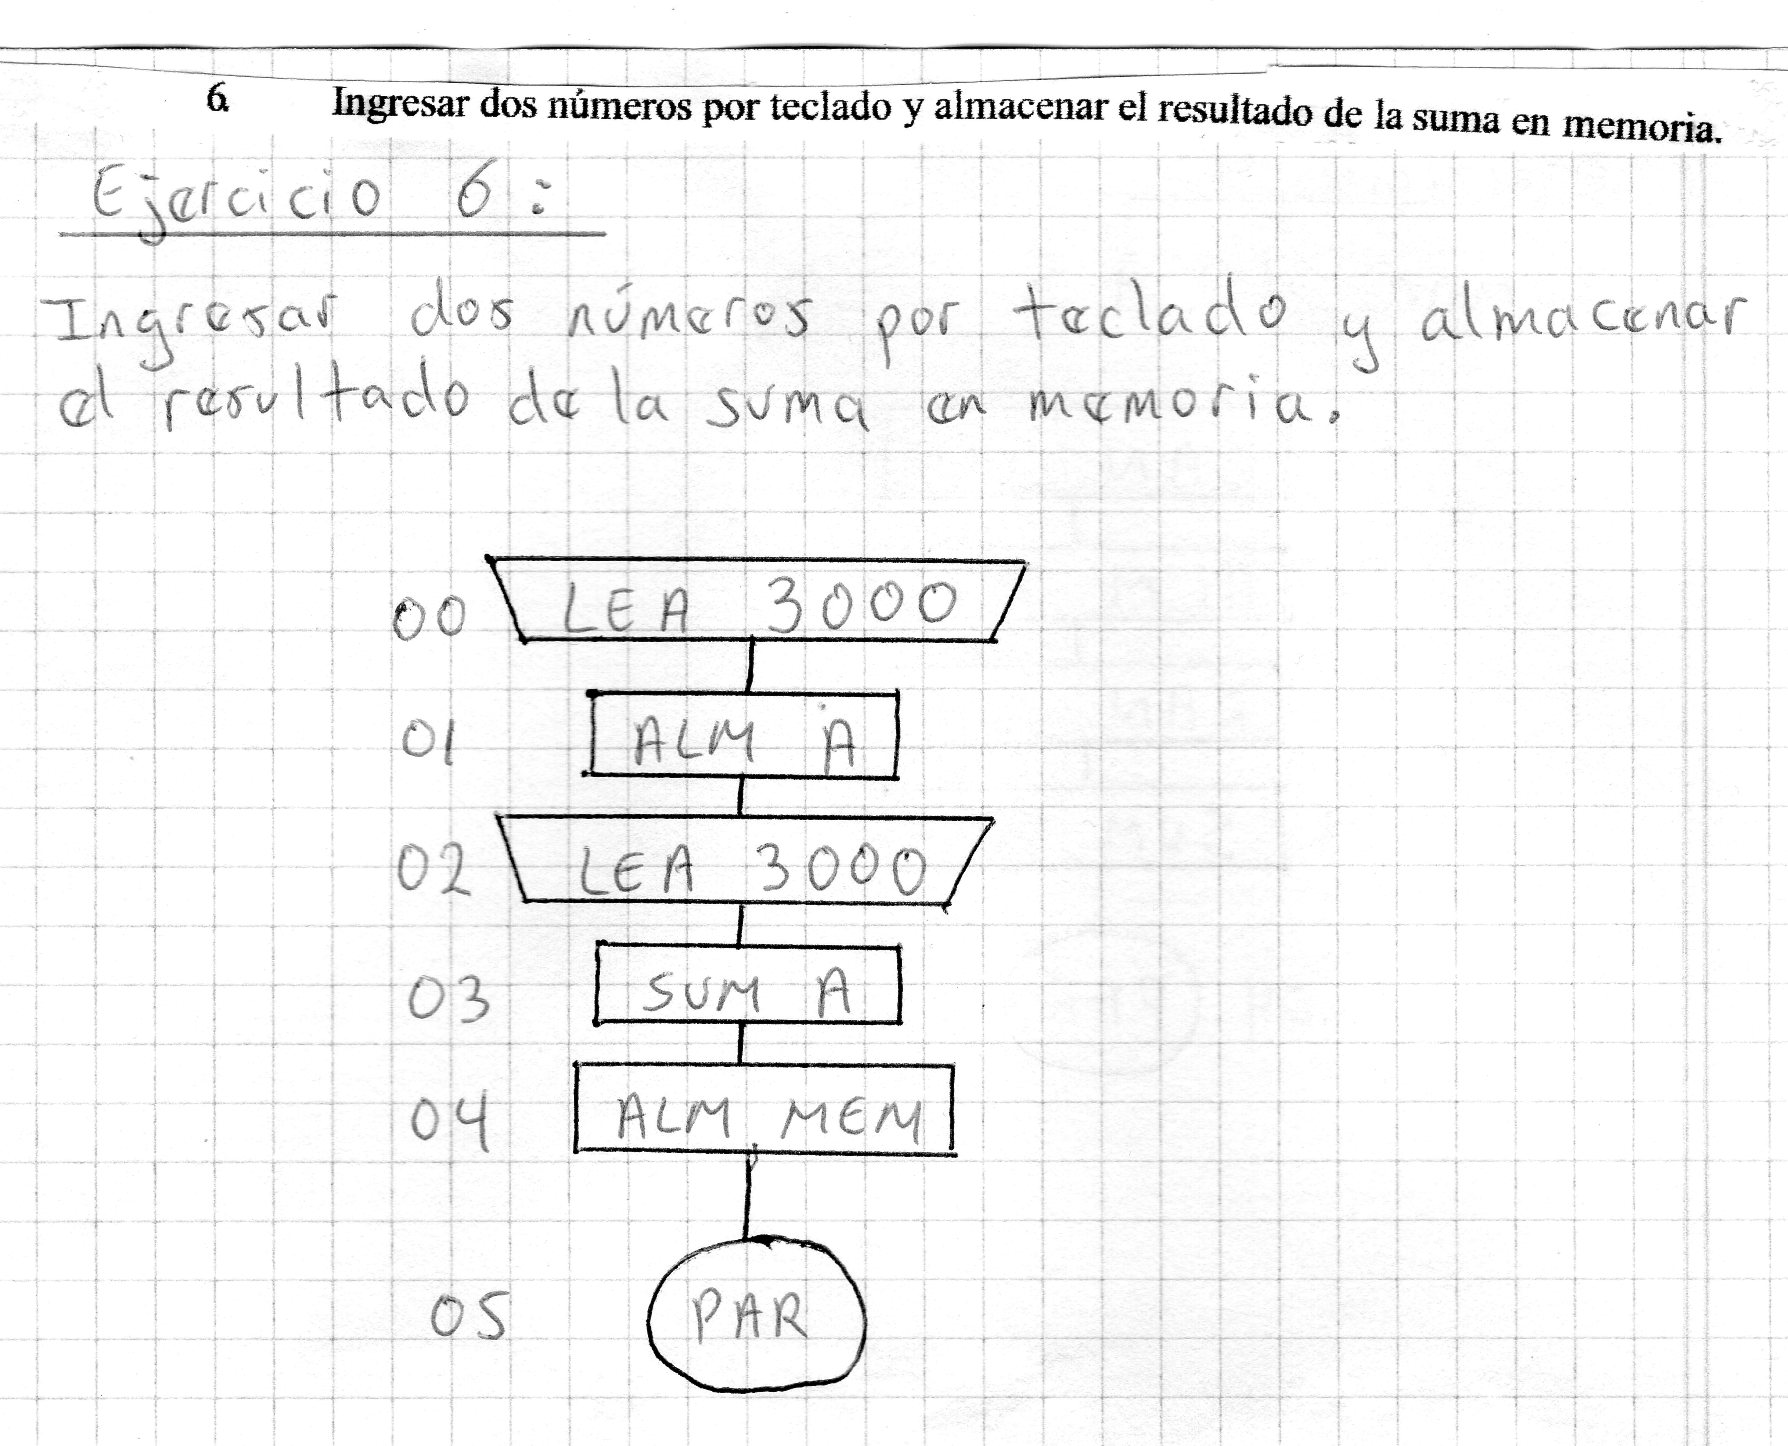 6 Ingresar dos números por teclado y almacenar el resultado de la suma en memoria.
Ejercicio 6:
Ingresar dos números por teclado y almacenar
el resultado de la suma en memoria.
00 LEA 3000
01 ALM A
02 LEA 3000
03 SUM A
04 ALM MEM
05 PAR